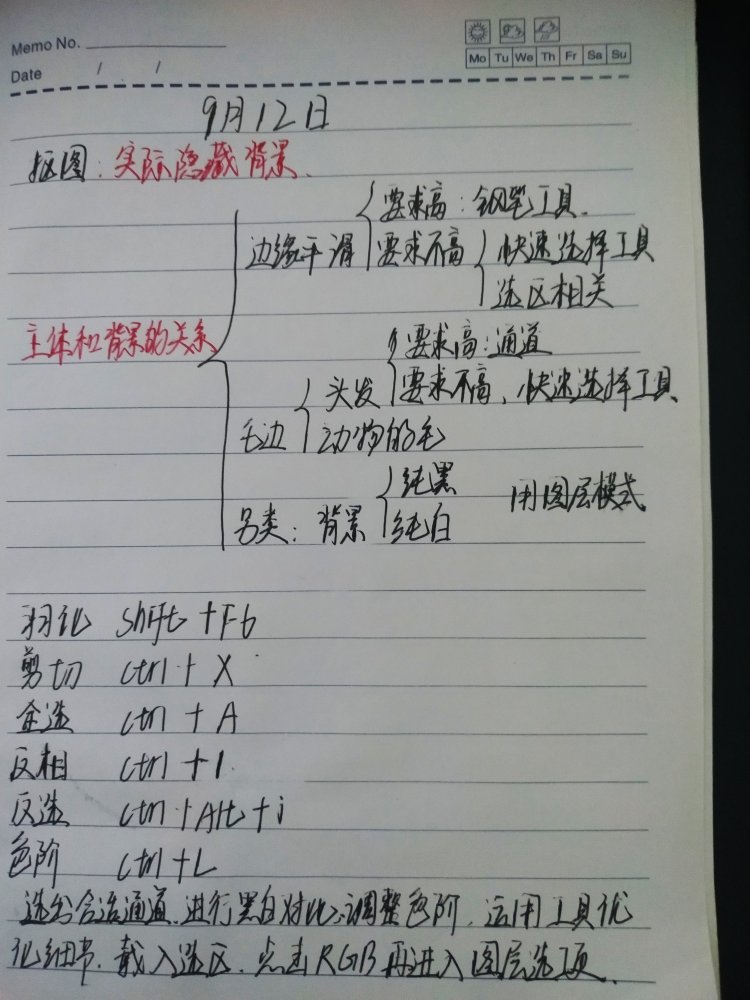 Memo No.
Date / /
Mo Tu We Th Fr Sa Su
9月12日
抠图:实际隐藏背景.
要求高:钢笔工具.
边缘平滑 要求不高 快速选择工具
选区相关
主体和背景的关系
要求高:通道
头发 要求不高、快速选择工具
毛边 动物的毛
纯黑 用图层模式.
另类:背景 纯白
羽化 shift+F6
剪切 ctrl+X
全选 ctrl+A
反相 ctrl+I
反选 ctrl+Alt+i
色阶 ctrl+L
选出合适通道.进行黑白对比.调整色阶.运用工具优
化细节.载入选区.点击RGB再进入图层选项.